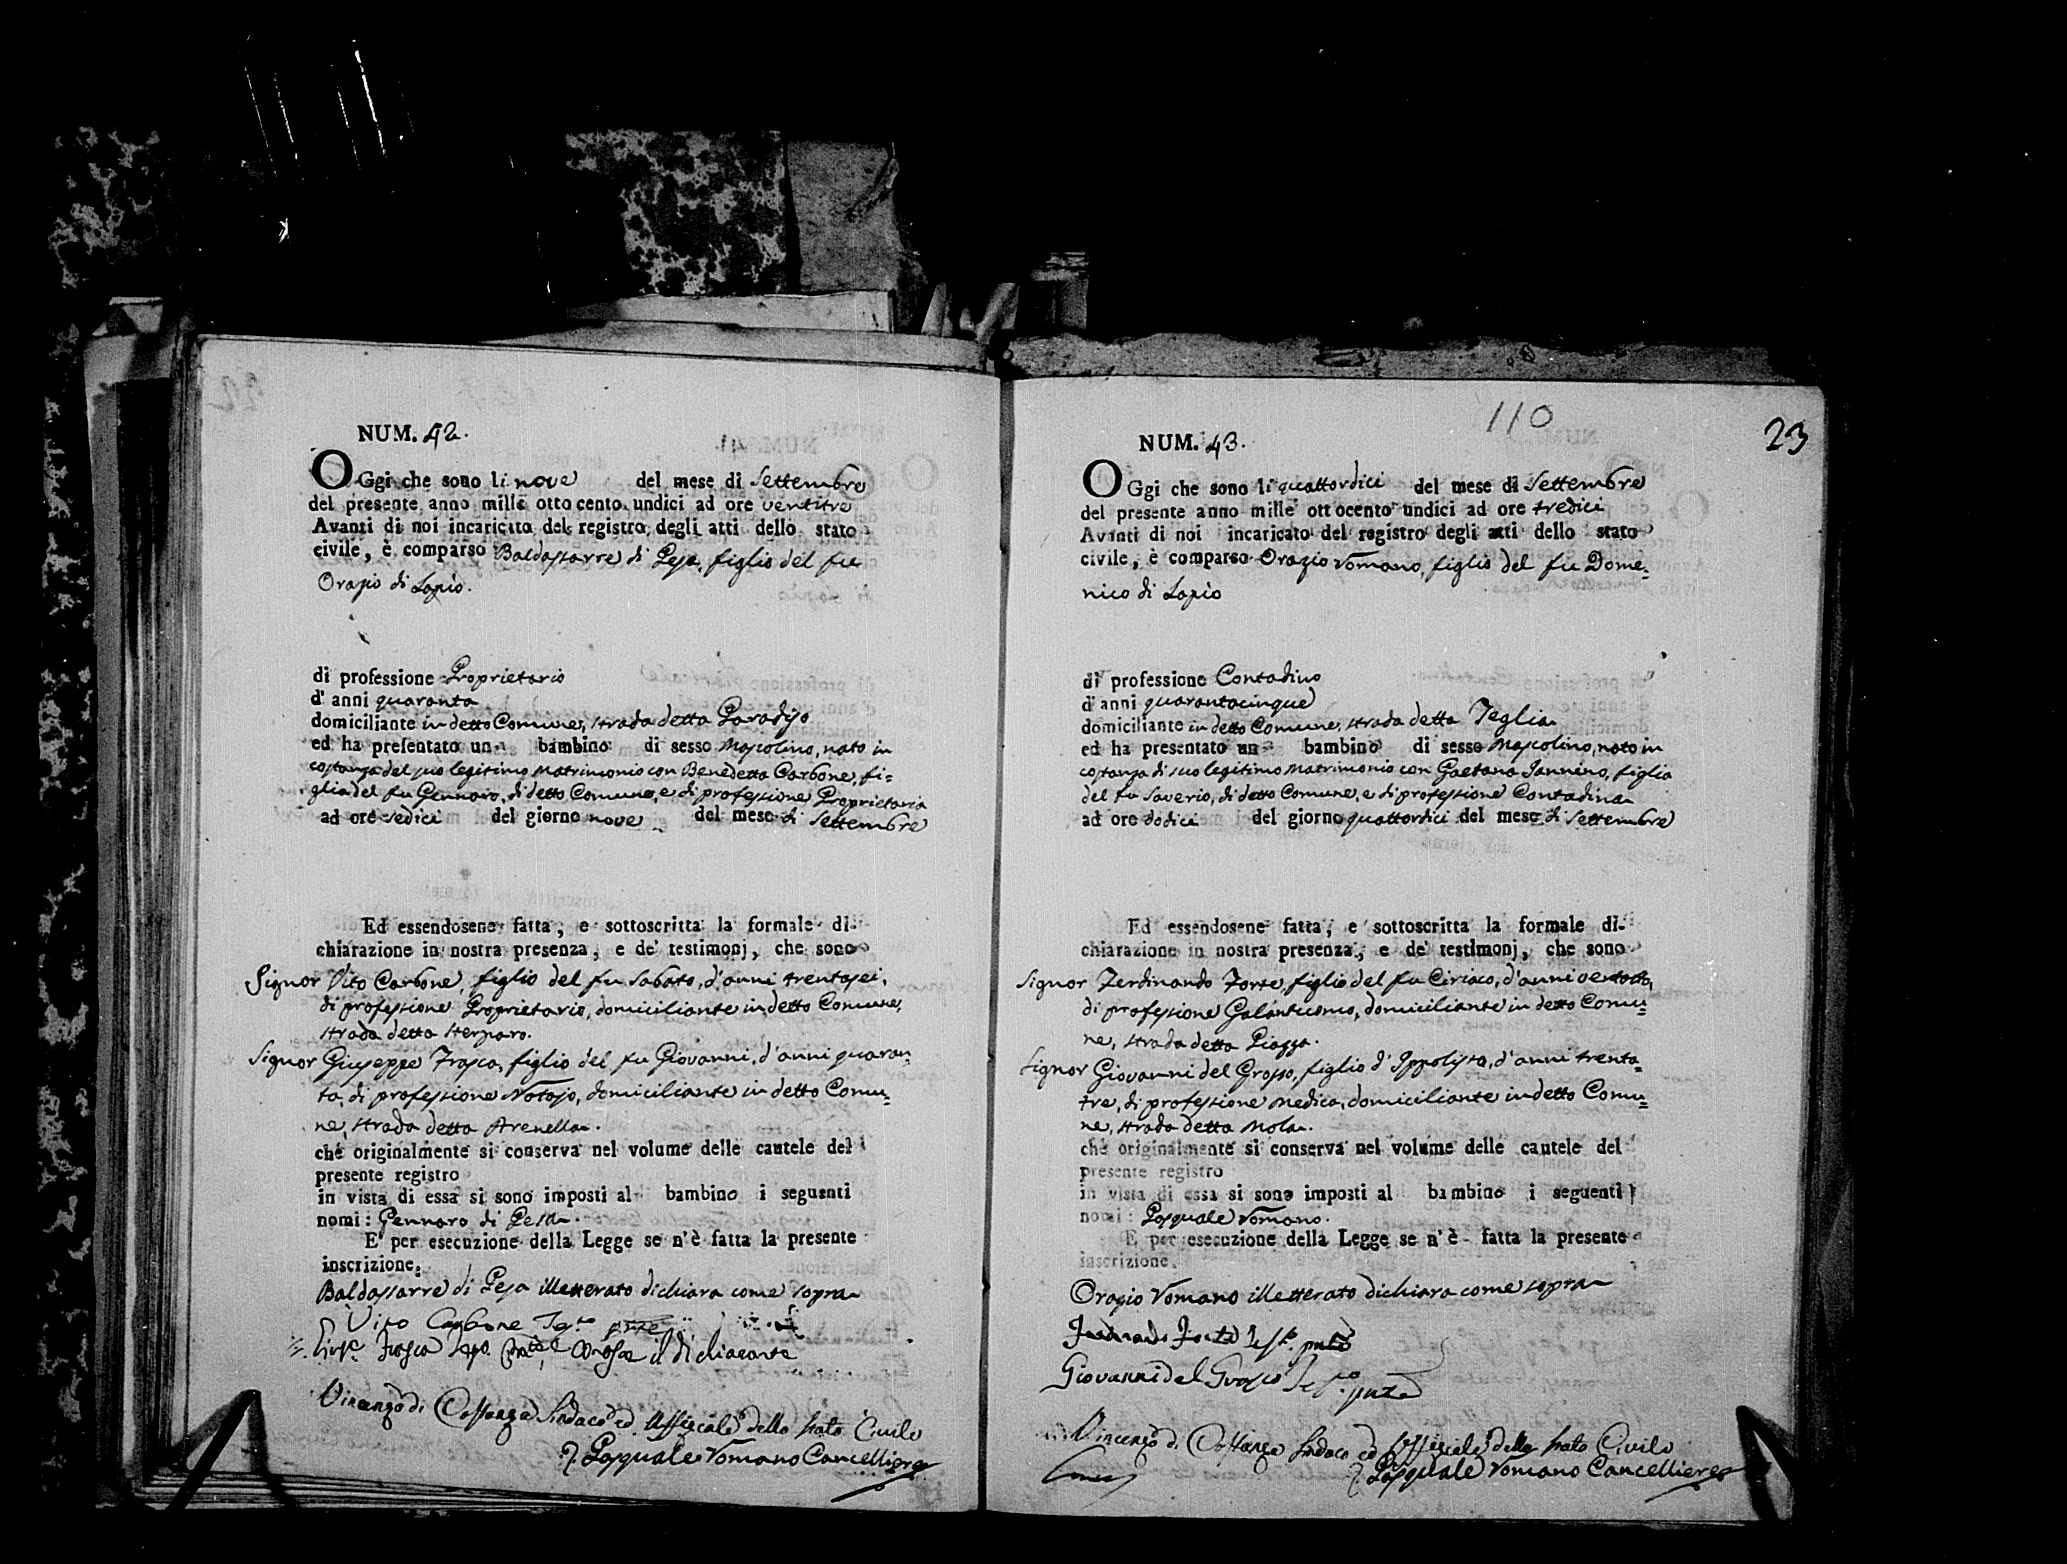 NUM. 42.
OGgi che sono li nove del mese di Settembre
del presente anno mille otto cento undici ad ore ventitre
Avanti di noi incaricato del registro degli atti dello stato
civile, è comparso Baldassarre di Pesa, figlio del fu
Orazio di Lapio.
di professione Proprietario
d' anni quaranta
domiciliante in detto Comune, strada detta Paradiso
ed ha presentato un bambino di sesso Mascolino, nato in
costanza del suo legitimo Matrimonio con Benedetta Carbone, fi=
glia del fu Gennaro, di detto Comune, e di professione Proprietaria
ad ore sedici del giorno nove del mese di Settembre
Ed essendosene fatta, e sottoscritta la formale di-
chiarazione in nostra presenza, e de' testimonj, che sono
Signor Vito Carbone, figlio del fu Sabato, d'anni trentasei,
di professione Proprietario, domiciliante in detto Comune,
strada detta Sterparo.
Signor Giuseppe Frasca, figlio del fu Giovanni, d'anni quaran=
ta, di professione Notajo, domiciliante in detto Comu=
ne, strada detta Arenella.
che originalmente si conserva nel volume delle cautele del
presente registro
in vista di essa si sono imposti al bambino i seguenti
nomi: Gennaro di Pesa.
E per esecuzione della Legge se n'è fatta la presente
inscrizione.
Baldassarre di Pesa illetterato dichiara come sopra
Vito Carbone Tes.to
Frasca il dichiarante
Vincenzo di Costanza Sindaco ed Uffiziale dello Stato Civile
Pasquale Romano Cancelliere
110
23
NUM. 43.
OGgi che sono li quattordici del mese di Settembre
del presente anno mille ottocento undici ad ore tredici
Avanti di noi incaricato del registro degli atti dello stato
civile, è comparso Orazio Romano, figlio del fu Dome=
nico di Lapio
di professione Contadino
d' anni quarantacinque
domiciliante in detto Comune, strada detta Teglia
ed ha presentato un bambino di sesso Mascolino, nato in
costanza di suo legitimo Matrimonio con Gaetana Iannino, figlia
del fu Saverio, di detto Comune, e di professione Contadina
ad ore dodici del giorno quattordici del mese di Settembre
Ed essendosene fatta, e sottoscritta la formale di-
chiarazione in nostra presenza, e de' testimonj, che sono
Signor Ferdinando Forte, figlio del fu Ciriaco, d'anni ventotto,
di professione Galantuomo, domiciliante in detto Comu=
ne, strada detta Piazza.
Signor Giovanni del Grosso, figlio d'Ippolisto, d'anni trenta=
tre, di professione Medico, domiciliante in detto Comu=
ne, strada detta Mola.
che originalmente si conserva nel volume delle cautele del
presente registro
in vista di essa si sono imposti al bambino i seguenti
nomi: Pasquale Romano.
E per esecuzione della Legge se n'è fatta la presente
inscrizione.
Orazio Romano illetterato dichiara come sopra
Ferdinando Forte Test.o pnte
Giovanni del Grosso Tes.o pnte
Vincenzo di Costanza Sindaco ed Uffiziale dello Stato Civile
Pasquale Romano Cancelliere